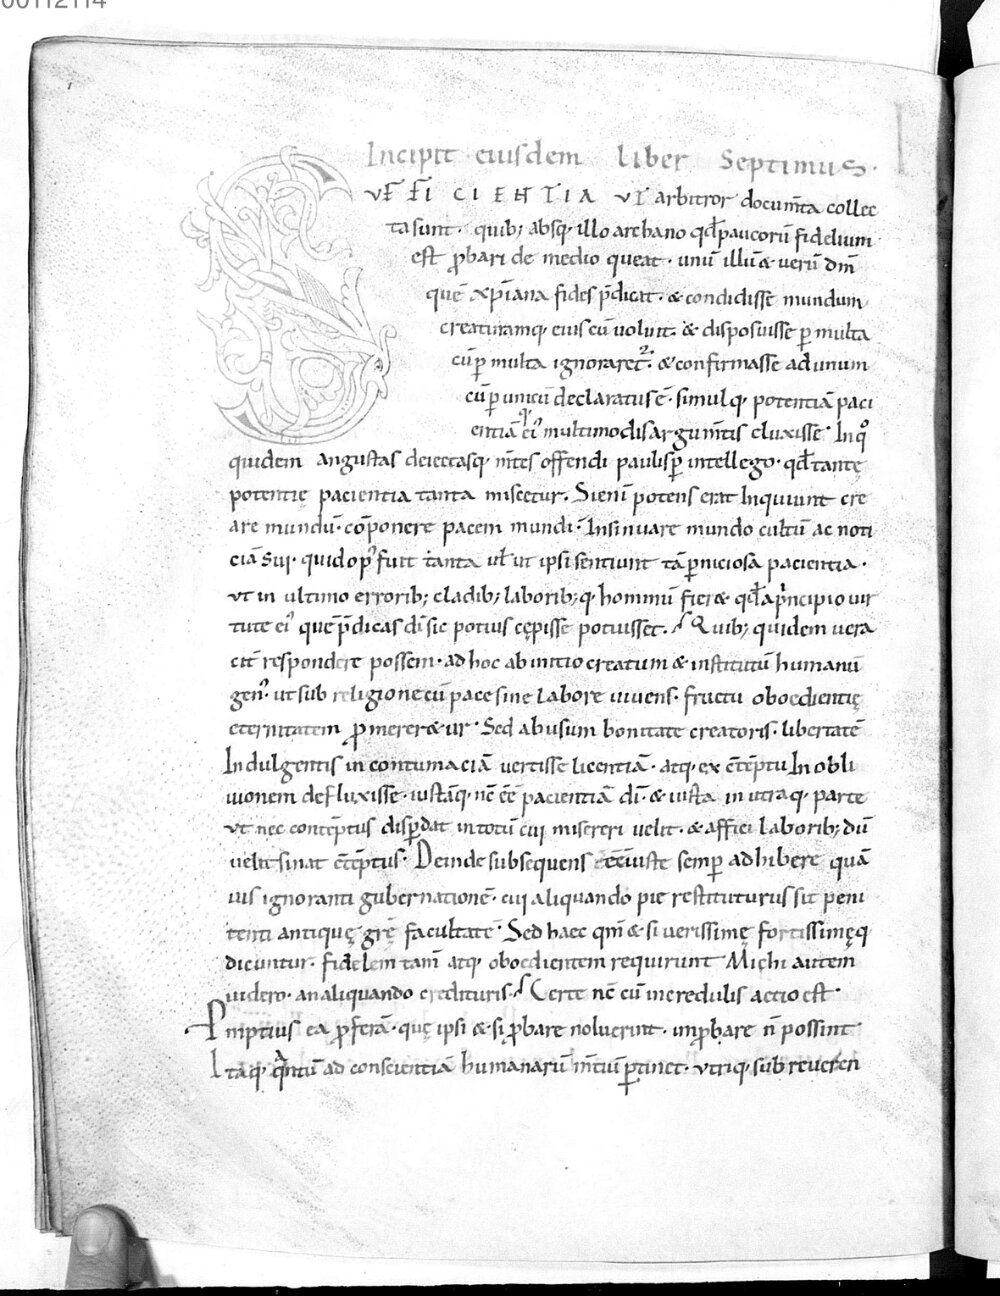 00112114
Incipit eiusdem liber Septimus.
SVFFICIENTIA VT arbitror docum̅ta collec
ta sunt. quib; absq; illo archano qd̅ paucoru̅ fidelium
est ꝓbari de medio queat. unu̅ illu̅ & veru̅ dm̅
que̅ xp̅iana fides p̅dicat. & condidisse mundum
creaturamq; eius cu̅ voluit. & disposuisse ꝑ multa
cu̅ ꝑ multa ignoraret᷑. & confirmasse ad unum
cu̅ ꝑ unicu̅ declaratus e̅. simulq; potentia̅ paci
entia̅q; ei᷒ multimodis argum̅tis eluxisse. In qͦ
quidem angustas deiectasq; m̅tes offendi paulisꝑ intellego. qd̅ tantę
potentię pacientia tanta miscetur. Si eni̅ potens erat Inquiunt cre
are mundu̅. co̅ponere pacem mundi. Insinuare mundo cultu̅ ac noti
cia̅ Sui. quid op᷒ fuit tanta ul̅ ut ipsi sentiunt ta̅ ꝑniciosa pacientia.
ut in ultimo errorib; cladib; laborib;q; hominu̅ fier& qd̅ a pͥncipio vir
tute ei᷒ que̅ p̅dicas di̅ sic potius cępisse potuisset. Quib; quidem vera
cit̅ respondere possem. ad hoc ab initio creatum & institutu̅ humanu̅
gen᷒. ut sub religione cu̅ pace sine labore vivens. fructu oboedientię
eternitatem ꝓmerer&ur. Sed abusum bonitate creatoris. libertate̅
Indulgentis in contumacia̅ vertisse licentia̅. atq; ex c̅te̅ptu In obli
uionem defluxisse. iusta̅q; nc̅ e̅e̅ pacientia̅ di̅. & iusta in utraq; parte
ut nec conte̅ptus disꝑdat in totu̅ cui misereri velit. & affici laborib; du̅
uelit sinat c̅te̅ptus. Deinde subsequens e̅e̅ iuste semꝑ adhibere qua̅
uis ignoranti gubernatione̅. cui aliquando pie restituturus sit peni
tenti antiquę gr̅ę facultate̅. Sed haec qm̅ & si verissimę fortissimęq;
dicuntur. fidelem tam̅ atq; oboedientem requirunt Michi autem
uidero. an aliquando credituris. Certe nc̅ cu̅ incredulis actio est.
Promptius ea ꝓfera̅. quę ipsi & si ꝓbare noluerint. inꝓbare n̅ possint
Itaq; qͣntu̅ ad conscientia̅ humanaru̅ m̅tiu̅ ꝑtinet. utriq; sub reveren